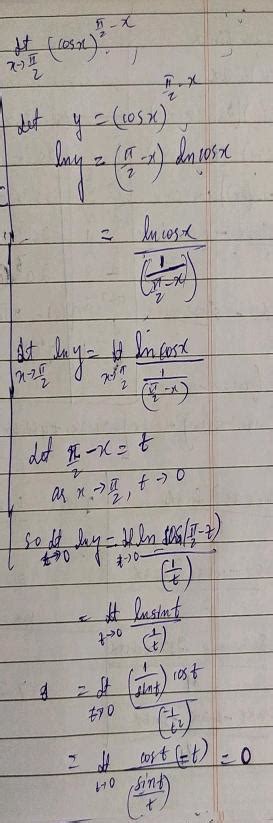 lt x→π/2 (cosx)^(π/2 - x) ,
Let y = (cosx)^(π/2 - x)
lny = (π/2 - x) lncosx
= lncosx / (1/(π/2 - x))
lt x→π/2 lny = lt x→π/2 lncosx / (1/(π/2 - x))
Let π/2 - x = t
as x → π/2, t → 0
so lt t→0 lny = lt t→0 ln cos(π/2 - t) / (1/t)
= lt t→0 lnsint / (1/t)
= lt t→0 (1/sint) cost / (-1/t²)
= lt t→0 cost (-t) / (sint/t) = 0